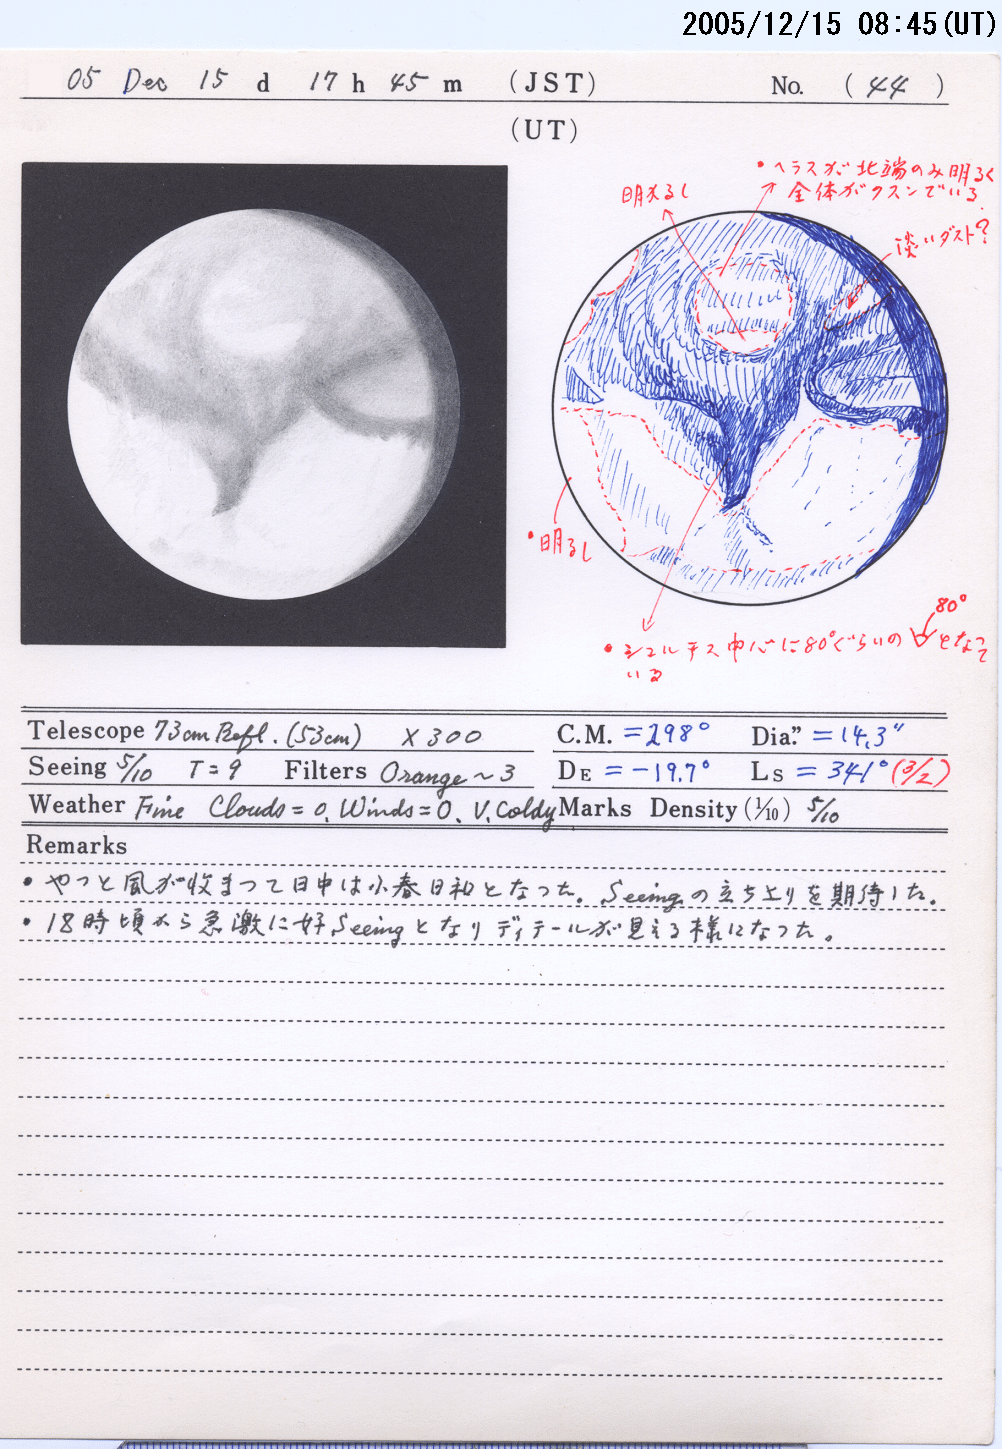 2005/12/15 08:45(UT)
05 Dec 15 d 17 h 45 m (JST) No. (44)
(UT)
・ヘラスが北端のみ明るく
全体がクスンでいる.
明るし
淡いダスト?
・明るし
80°
・シュルチス中心に80°ぐらいの となって
いる
Telescope 73cm Refl. (53cm) X300
C.M. =298° Dia." =14.3"
Seeing 5/10 T=9 Filters Orange~3
DE =-19.7° Ls =341° (3/2)
Weather Fine Clouds=0, Winds=0, V.Coldy
Marks Density (1/10) 5/10
Remarks
・やっと風が収まって日中は小春日和となった。Seeingの立ち上りを期待した。
・18時頃から急激に好Seeingとなりディテールが見える様になった。